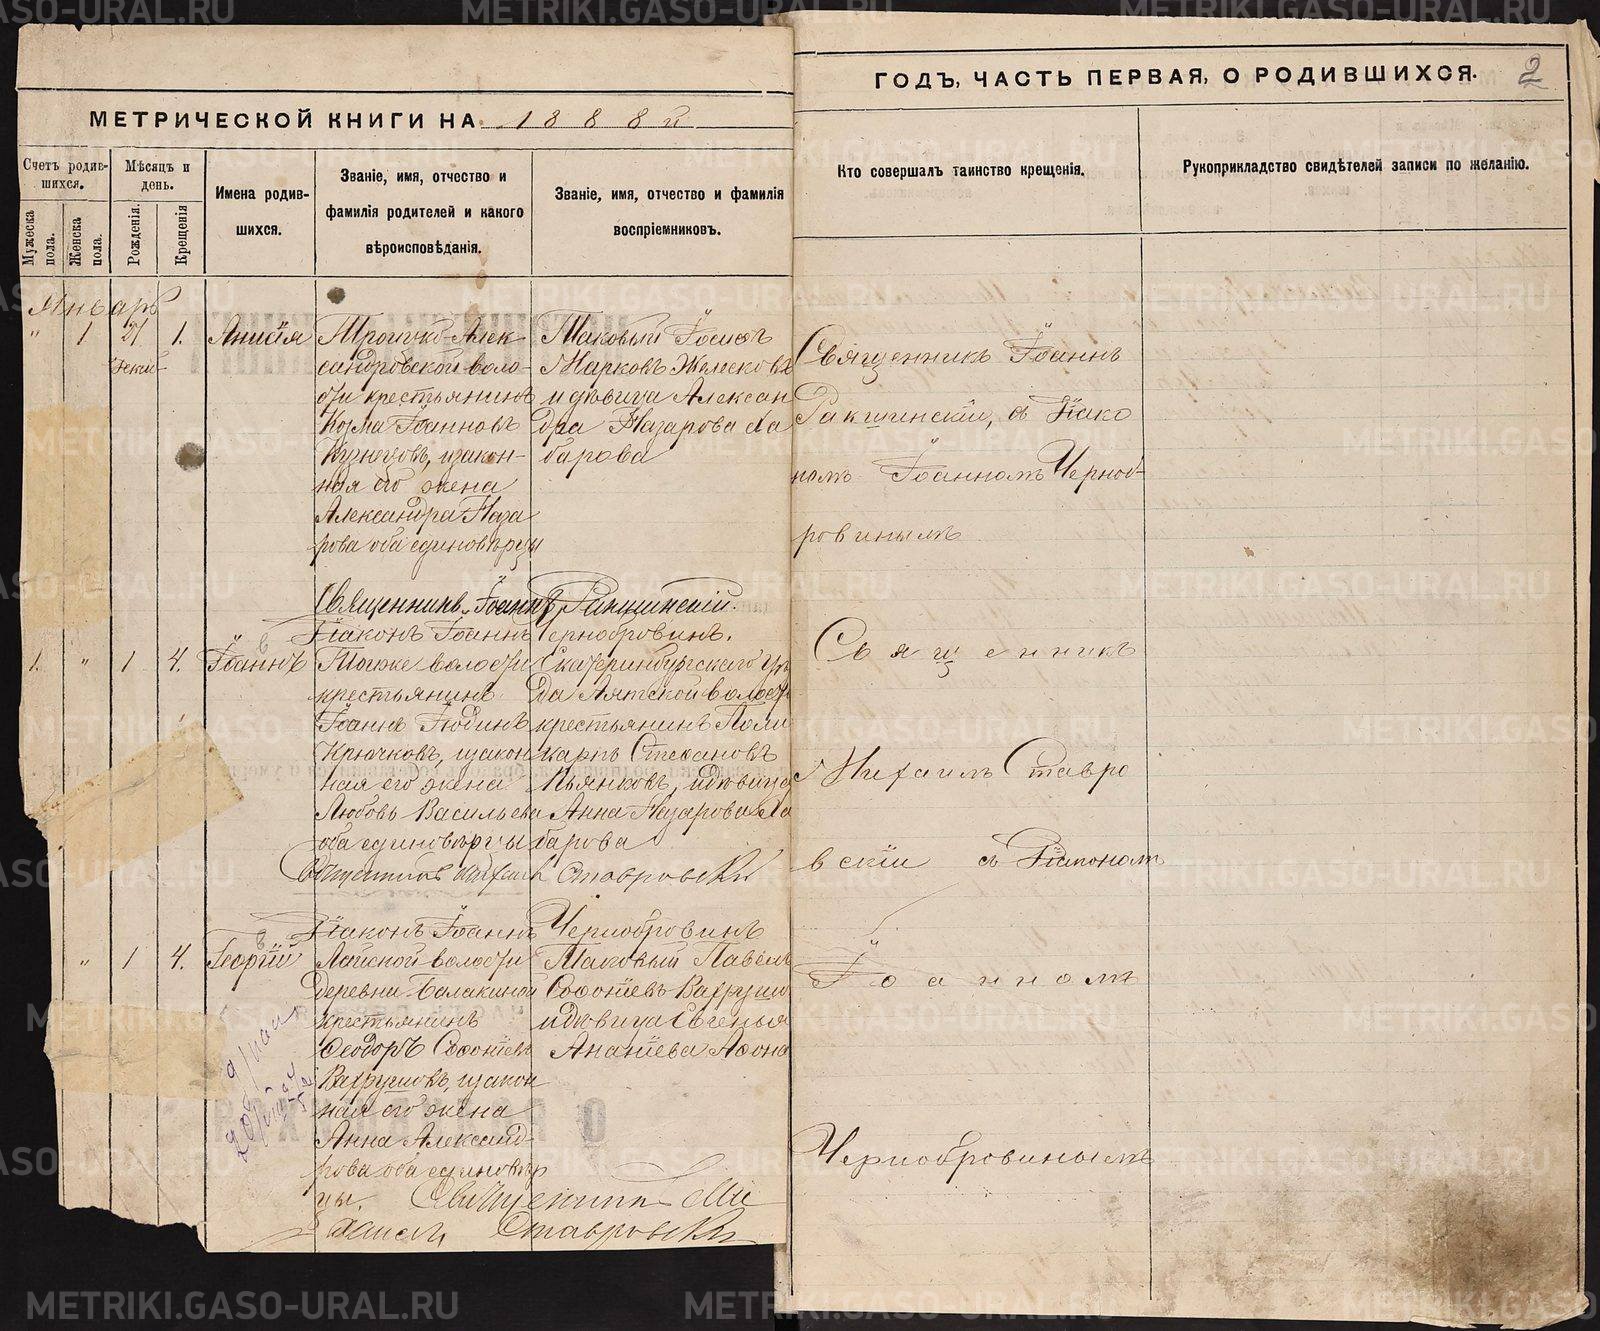 МЕТРИЧЕСКОЙ КНИГИ НА 1888й
ГОДЪ, ЧАСТЬ ПЕРВАЯ, О РОДИВШИХСЯ.
2
Счетъ родив-
шихся.
Мужеска пола.
Женска пола.
Мѣсяцъ и
день.
Рожденія.
Крещенія
Имена родив-
шихся.
Званіе, имя, отчество и
фамилія родителей и какого
вѣроисповѣданія.
Званіе, имя, отчество и фамилія
воспріемниковъ.
Кто совершалъ таинство крещенія.
Рукоприкладство свидѣтелей записи по желанію.
Январь
" 1 1. Анисія
Троицко-Алек
сандровской воло-
сти крестьянинъ
Козма Іоанновъ
Кузнецовъ, изакон-
ная его жена
Александра Наза
рова оба единовѣрцы
Таковый Іосифъ
Марковъ
и дѣвица Алексан
дра Назарова Ла
барова
Священникъ Іоаннъ
Ракшинскій, съ Діако
номъ Іоанномъ Черноб-
ровинымъ
Священникъ Іоаннъ Ракшинскій.
Діаконъ Іоаннъ Чернобровинъ.
1. " 1 4. Іоаннъ
Тойже волости
крестьянинъ
Іоаннъ Іюдинъ
Крючковъ, изакон
ная его жена
Любовь Васильева
оба единовѣрцы
Екатеринбургскаго уѣз
да Аятской волости
крестьянинъ Поли
карпъ Стефановъ
Пьянковъ, идѣвица
Анна Назарова Ла
барова
Священникъ
Михаилъ Ставро
вскій съ Діакономъ
Іоанномъ
Чернобровинымъ
Священникъ Михаилъ Ставровскій
Діаконъ Іоаннъ Чернобровинъ
" 1 4. Георгій
Лайской волости
деревни Балакиной
крестьянинъ
Ѳеодоръ Софоніевъ
Вахрушовъ, изакон
ная его жена
Анна Александ-
рова оба единовѣр
цы.
Таковый Павелъ
Софоніевъ Вахрушо
идѣвица Евгенія
Ананіева Афона
Священникъ Ми
хаилъ Ставровскій
METRIKI.GASO-URAL.RU